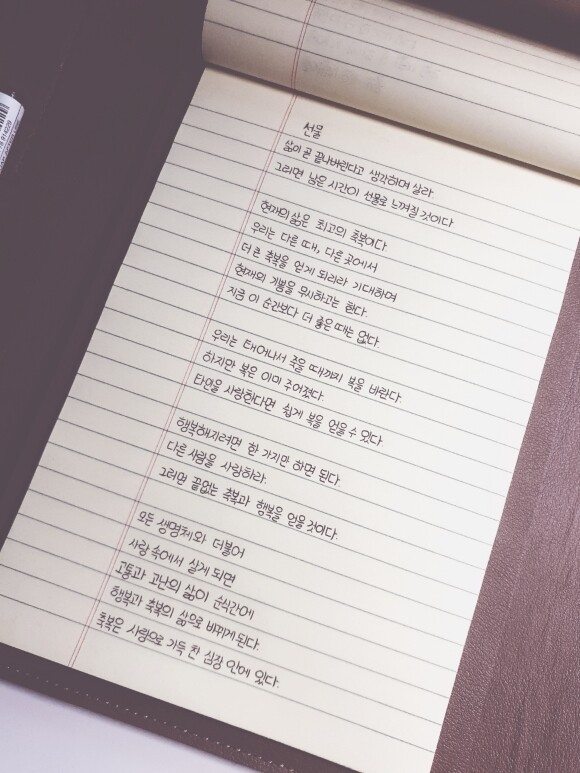 선물
삶이 곧 끝나버린다고 생각하며 살라.
그러면 남은 시간이 선물로 느껴질 것이다
현재의 삶은 최고의 축복이다
우리는 다른 때, 다른 곳에서
더 큰 축복을 얻게 되리라 기대하며
현재의 기쁨을 무시하고는 한다.
지금 이 순간보다 더 좋은 때는 없다.
우리는 태어나서 죽을 때까지 복을 바란다.
하지만 복은 이미 주어졌다.
타인을 사랑한다면 쉽게 복을 얻을 수 있다.
행복해지려면 한 가지만 하면 된다.
다른 사람을 사랑하라.
그러면 끝없는 축복과 행복을 얻을 것이다.
모든 생명체와 더불어
사랑 속에서 살게 되면
고통과 고난의 삶이 순식간에
행복과 축복의 삶으로 바뀌게 된다.
축복은 사랑으로 가득 찬 심장 안에 있다.